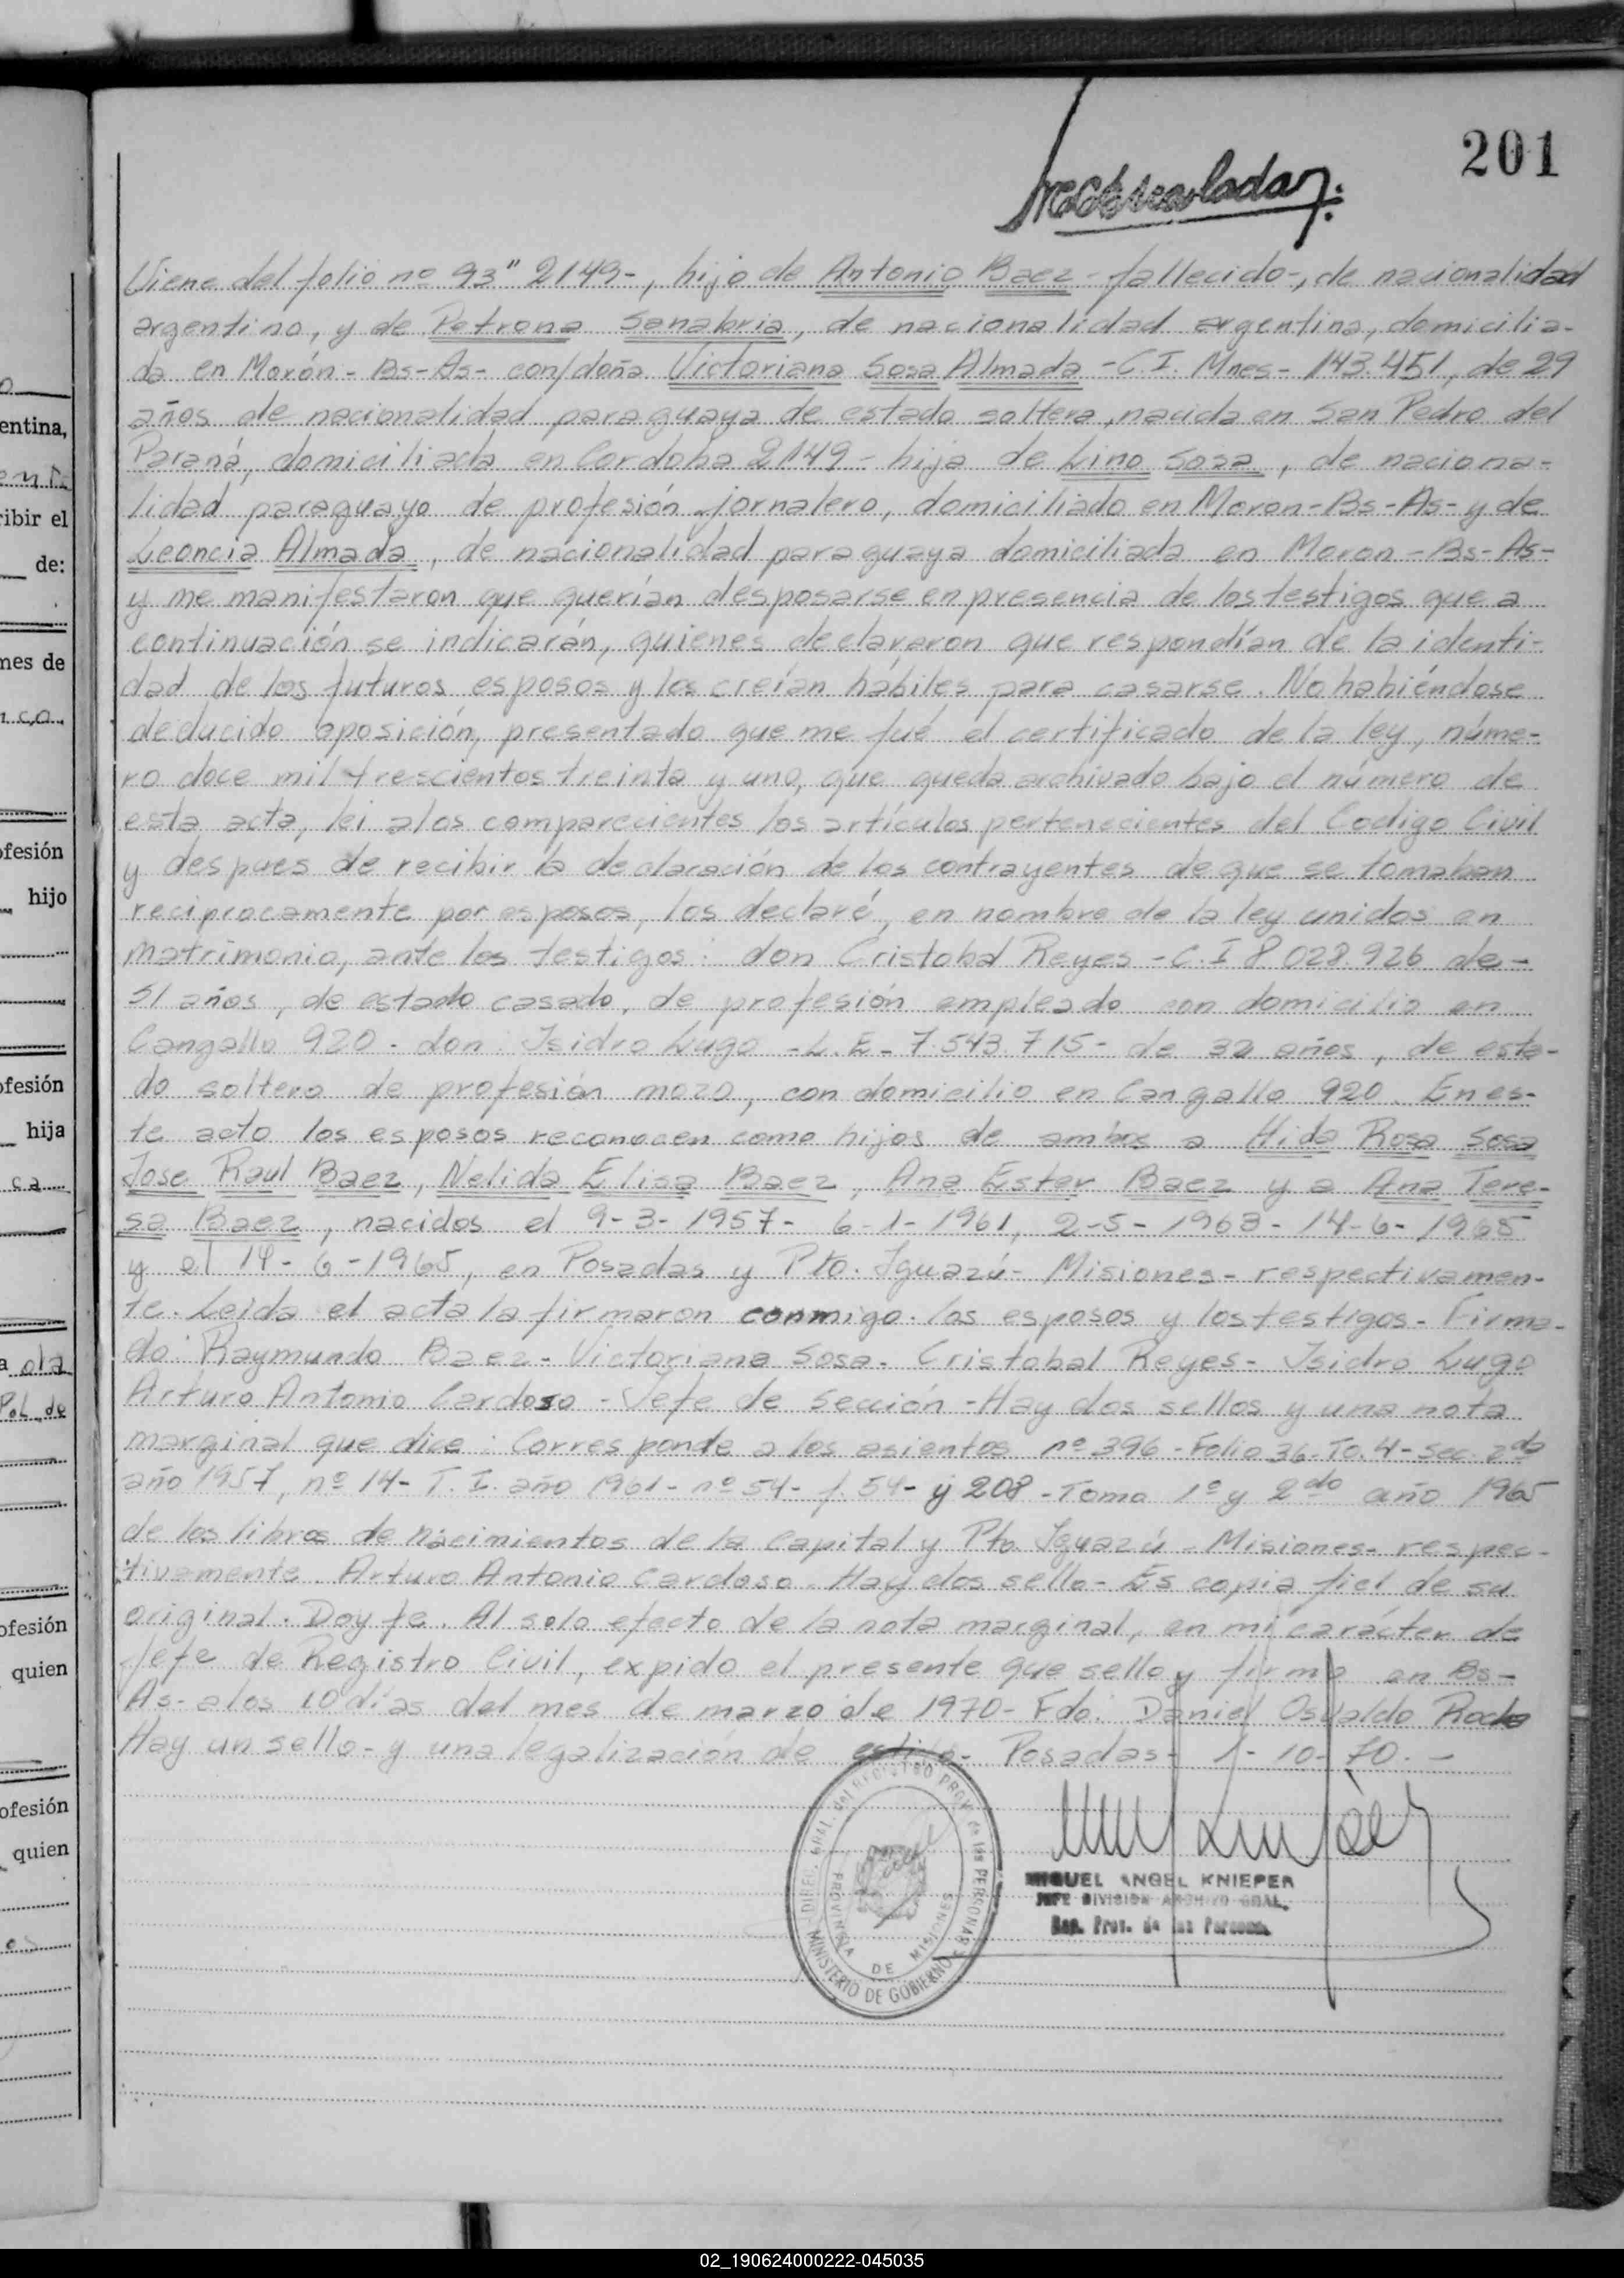 201
Viene del folio nº 93" 2149-, hijo de Antonio Baez - fallecido-, de nacionalidad
argentino, y de Petrona Sanabria, de nacionalidad argentina, domicilia-
da en Morón - Bs-As- con/doña Victoriana Sosa Almada - C.I. Mnes- 143.451, de 29
años de nacionalidad paraguaya de estado soltera, nacida en San Pedro del
Paraná, domiciliada en Cordoba 2149 - hija de Lino Sosa, de naciona-
lidad paraguayo de profesión jornalero, domiciliado en Moron - Bs-As- y de
Leoncia Almada, de nacionalidad paraguaya domiciliada en Moron - Bs-As-
y me manifestaron que querían desposarse en presencia de los testigos que a
continuación se indicarán, quienes declararon que respondían de la identi-
dad de los futuros esposos y los creían hábiles para casarse. No habiéndose
deducido oposición, presentado que me fué el certificado de la ley, núme-
ro doce mil trescientos treinta y uno, que queda archivado bajo el número de
esta acta, lei a los comparecientes los artículos pertenecientes del Codigo Civil
y despues de recibir la declaración de los contrayentes de que se tomaban
reciprocamente por esposos, los declaré, en nombre de la ley unidos en
matrimonio, ante los testigos: don Cristobal Reyes - C.I 8.028.926 de -
51 años, de estado casado, de profesión empleado con domicilio en
Cangallo 920 - don Isidro Lugo - L.E - 7.543.715 - de 32 años, de esta-
do soltero de profesión mozo, con domicilio en Cangallo 920. En es-
te acto los esposos reconocen como hijos de ambos a Hida Rosa Sosa
Jose Raul Baez, Nelida Elisa Baez, Ana Ester Baez y a Ana Tere-
sa Baez, nacidos el 9-3-1957- 6-1-1961, 2-5-1963- 14-6-1965
y el 14-6-1965, en Posadas y Pto. Iguazú - Misiones - respectivamen-
te. Leida el acta la firmaron conmigo los esposos y los testigos - Firma-
do: Raymundo Baez - Victoriana Sosa - Cristobal Reyes - Isidro Lugo
Arturo Antonio Cardoso - Jefe de sección - Hay dos sellos y una nota
marginal que dice: Corresponde a los asientos nº 396 - Folio 36 - To. 4 - Sec. 2da
año 1957, nº 14 - T. I. año 1961 - nº 54 - f. 54 - y 208 - Tomo 1º y 2do año 1965
de los libros de nacimientos de la Capital y Pto. Iguazú - Misiones - respec-
tivamente. Arturo Antonio Cardoso. Hay dos sello - Es copia fiel de su
original. Doy fe. Al solo efecto de la nota marginal, en mi carácter de
Jefe de Registro Civil, expido el presente que sello y firmo en Bs-
As- a los 10 días del mes de marzo de 1970 - Fdo: Daniel Osvaldo
Hay un sello - y una legalización de estilo - Posadas - 1-10-70. -
DIREC. GRAL. del REGISTRO PROV. de las PERSONAS
MINISTERIO DE GOBIERNO
PROVINCIA DE MISIONES
MIGUEL ANGEL KNIEPER
JEFE DIVISION ARCHIVO GRAL.
Reg. Prov. de las Personas
entina,
ribir el
de:
mes de
ofesión
hijo
ofesión
hija
ca
Pol. de
ofesión
quien
ofesión
quien
02_190624000222-045035